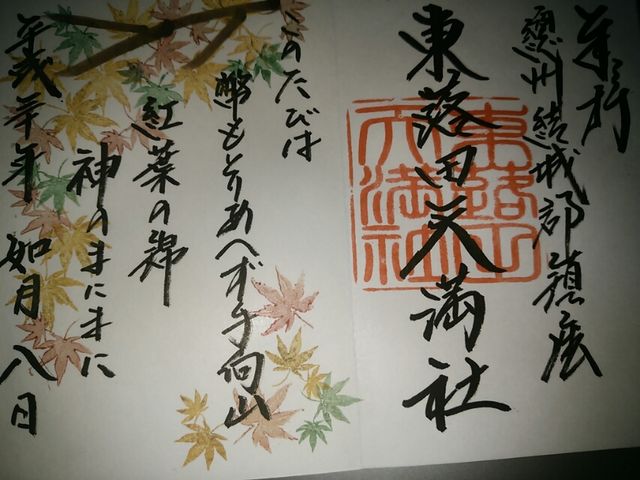 奉拝
總州結城郡鎮座
東蕗田天満社
東蕗田
天満社
このたびは
幣もとりあへず手向山
紅葉の錦
神のまにまに
平成三十年 如月八日